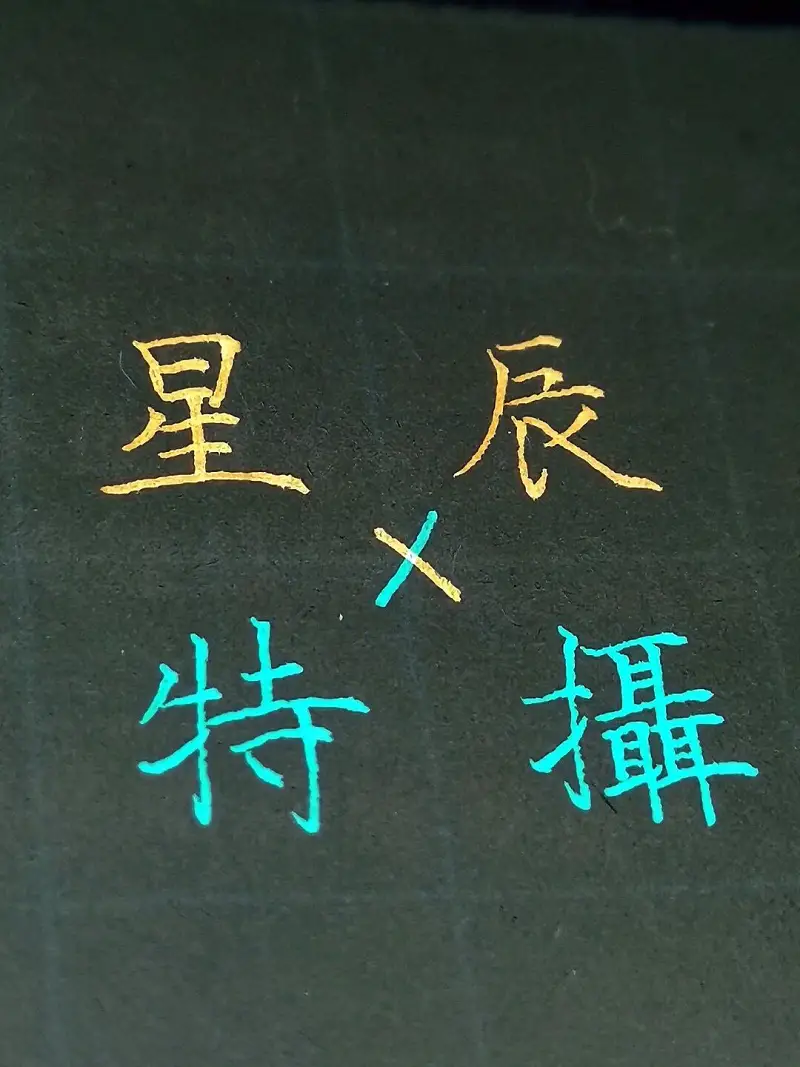 星辰
×
特攝